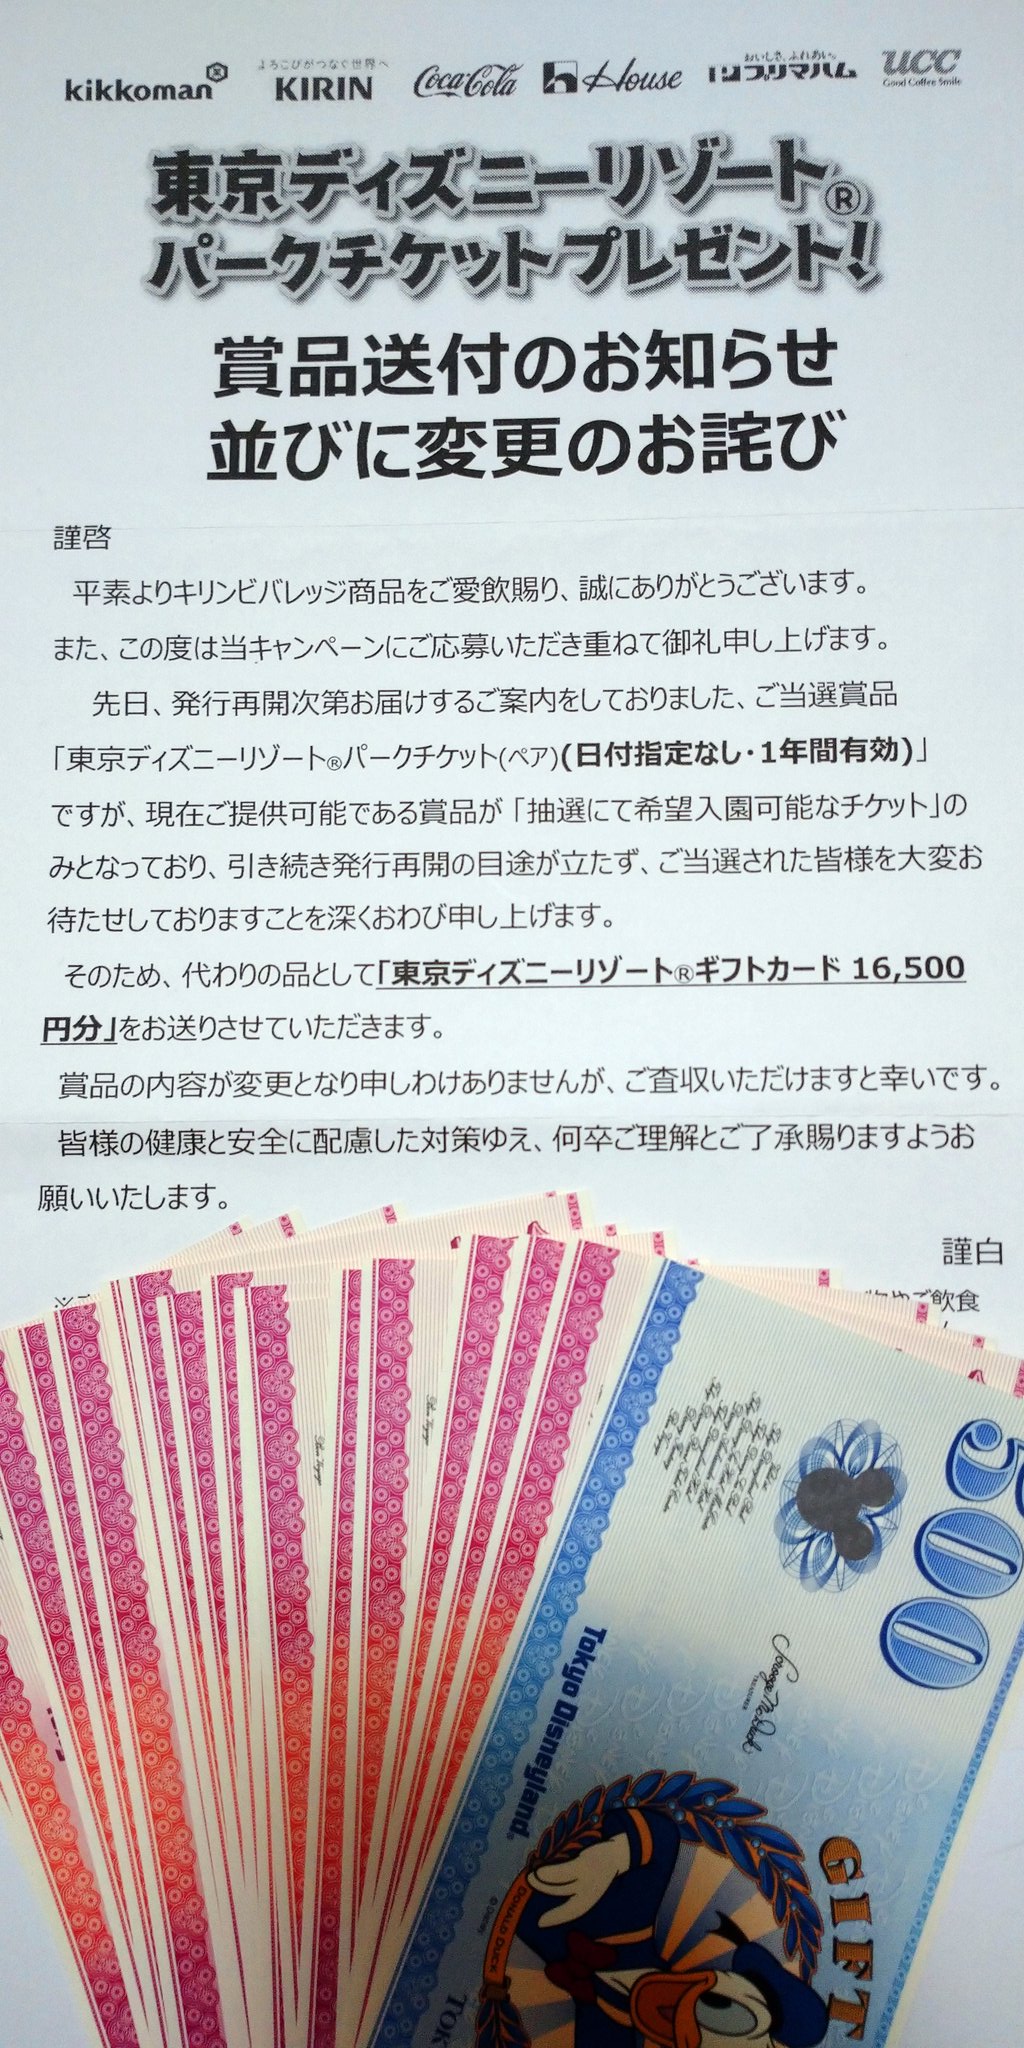 kikkoman
よろこびがつなぐ世界へ
KIRIN
Coca-Cola
House
おいしさ、ふれあい。
プリマハム
UCC
Good Coffee Smile
東京ディズニーリゾート®
パークチケットプレゼント!
賞品送付のお知らせ
並びに変更のお詫び
謹啓
平素よりキリンビバレッジ商品をご愛飲賜り、誠にありがとうございます。
また、この度は当キャンペーンにご応募いただき重ねて御礼申し上げます。
先日、発行再開次第お届けするご案内をしておりました、ご当選賞品
「東京ディズニーリゾート®パークチケット(ペア)(日付指定なし・1年間有効)」
ですが、現在ご提供可能である賞品が「抽選にて希望入園可能なチケット」の
みとなっており、引き続き発行再開の目途が立たず、ご当選された皆様を大変お
待たせしておりますことを深くおわび申し上げます。
そのため、代わりの品として「東京ディズニーリゾート®ギフトカード 16,500
円分」をお送りさせていただきます。
賞品の内容が変更となり申しわけありませんが、ご査収いただけますと幸いです。
皆様の健康と安全に配慮した対策ゆえ、何卒ご理解とご了承賜りますようお
願いいたします。
謹白
※
やご飲食
500
Tokyo Disneyland®
TREASURER
GIFT
DONALD DUCK
© Disney
TOK